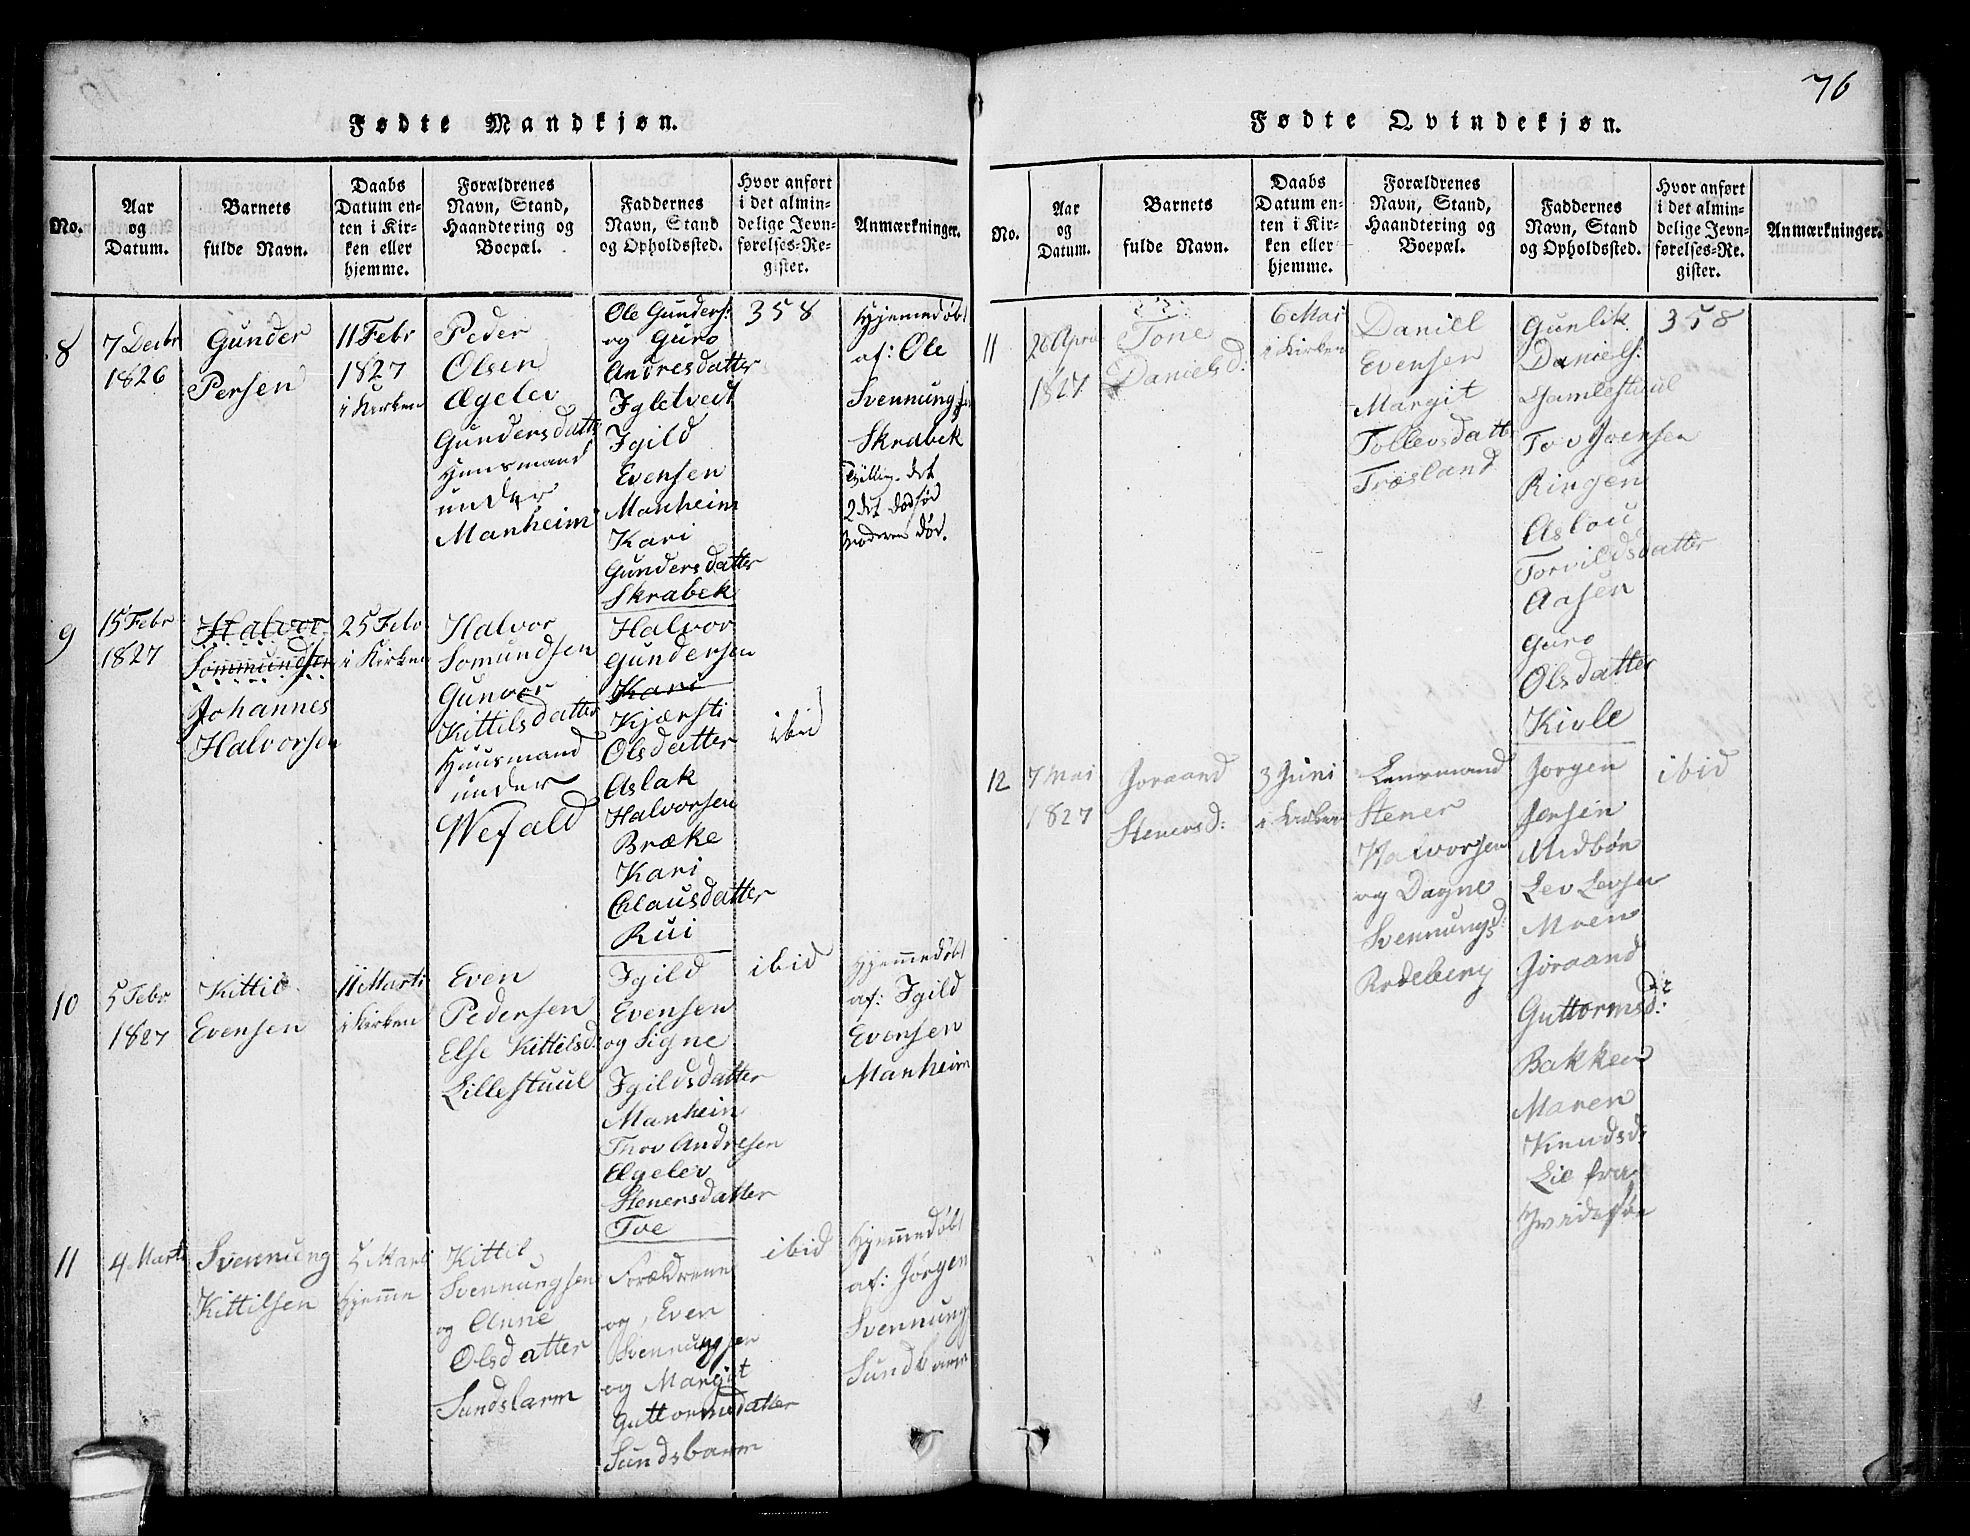 Fødte Mandkjøn.
No.
Aar
og
Datum.
Barnets
fulde Navn.
Daabs
Datum en-
ten i Kir-
ken eller
hjemme.
Forældrenes
Navn, Stand,
Haandtering og
Boepæl.
Faddernes
Navn, Stand
og Opholdssted.
Hvor anført
i det almin-
delige Jevn-
førelses-Re-
gister.
Anmærkninger.
8
7 Decbr
1826
Gunder
Persen
11 Febr
1827
i Kirken
Peder
Olsen
Ægelev
Gundersdatter
Huusmand
under
Manheim
Ole Gunders:
og Guro
Andresdatter
Igletveit
Igild
Evensen
Manheim
Kari
Gundersdatter
Skrabek
358
Hjemmedøbt
af: Ole
Svennungs
Skrabek
Tvilling. det
2det dødfød
Moderen død.
9
15 Febr
1827
Halvor
Sommundsen
Johannes
Halvorsen
25 Febr
i Kirken
Halvor
Somundsen
Gunvor
Kittilsdatter
Huusmand
under
Wefald
Halvor
Gundersen
Kari
Kjærsti
Olsdatter
Aslak
Halvorsen
Bræke
Kari
Clausdatter
Rui
ibid
10
5 Febr
1827
Kittil
Evensen
11 Marti
i Kirken
Even
Pedersen
Else Kittilsd:
Lillestuul
Igild
Evensen
og Signe
Igildsdatter
Manhein
Thov Andresen
Ægelev
Stenersdatter
Tve
ibid
Hjemmedøbt
af: Igild
Evensen
Manheim
11
4 Marti
Svennung
Kittilsen
5 Marti
Hjemme
Kittil
Svennungsen
og Anne
Olsdatter
Sundsbarm
Forældrene
og, Even
Svennungsen
og Margit
Guttormsdatter
Sundsbarm
ibid
Hjemmedøbt
af: Jørgen
Svennungs
Sundbarm
76
Fødte Qvindekjøn.
No.
Aar
og
Datum.
Barnets
fulde Navn.
Daabs
Datum en-
ten i Kir-
ken eller
hjemme.
Forældrenes
Navn, Stand,
Haandtering og
Boepæl.
Faddernes
Navn, Stand
og Opholdssted.
Hvor anført
i det almin-
delige Jevn-
førelses-Re-
gister.
Anmærkninger.
11
26 April
1827
Tone
Danielsd:
6 Mai
i Kirken
Daniel
Evensen
Margit
Tollevsdatter
Træsland
Gunlik
Daniels:
Gamlestuul
Tov Jversen
Ringen
Aslou
Torvildsdatter
Aasen
Guro
Olsdatter
Kivle
358
12
7 Mai
1827
Joraand
Stenersd:
3 Juni
i Kirken
Lensmand
Stener
Halvorsen
og Dagne
Svennungsd:
Rodeberg
Jorgen
Jensen
Midbøn
Lev Levsen
Moen
Joraand
Guttormsd:
Bakken
Maren
Knudsd:
Lie fra
Hvideføe
ibid